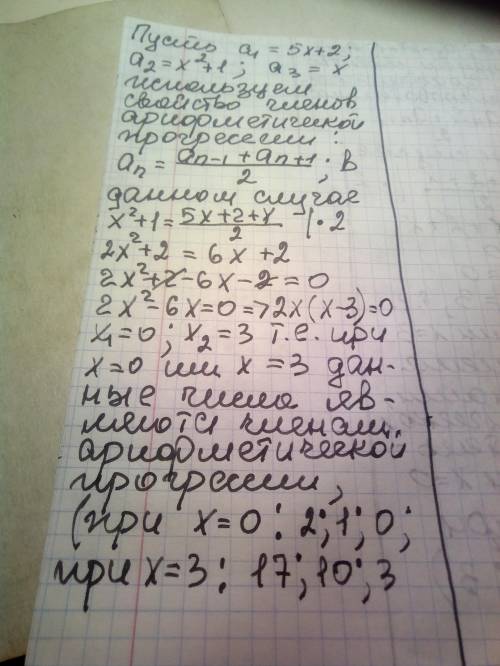 Пусть a₁ = 5x+2;
a₂ = x²+1; a₃ = x
используем
свойство членов
арифметической
прогрессии:
aₙ = (aₙ₋₁ + aₙ₊₁)/2; В
данном случае
x²+1 = (5x+2+x)/2 |·2
2x²+2 = 6x+2
2x²+2-6x-2=0
2x²-6x=0 => 2x(x-3)=0
x₁=0; x₂=3 т.е. при
x=0 или x=3 дан-
ные числа яв-
ляются членами
арифметической
прогрессии,
(при x=0: 2; 1; 0;
при x=3: 17; 10; 3